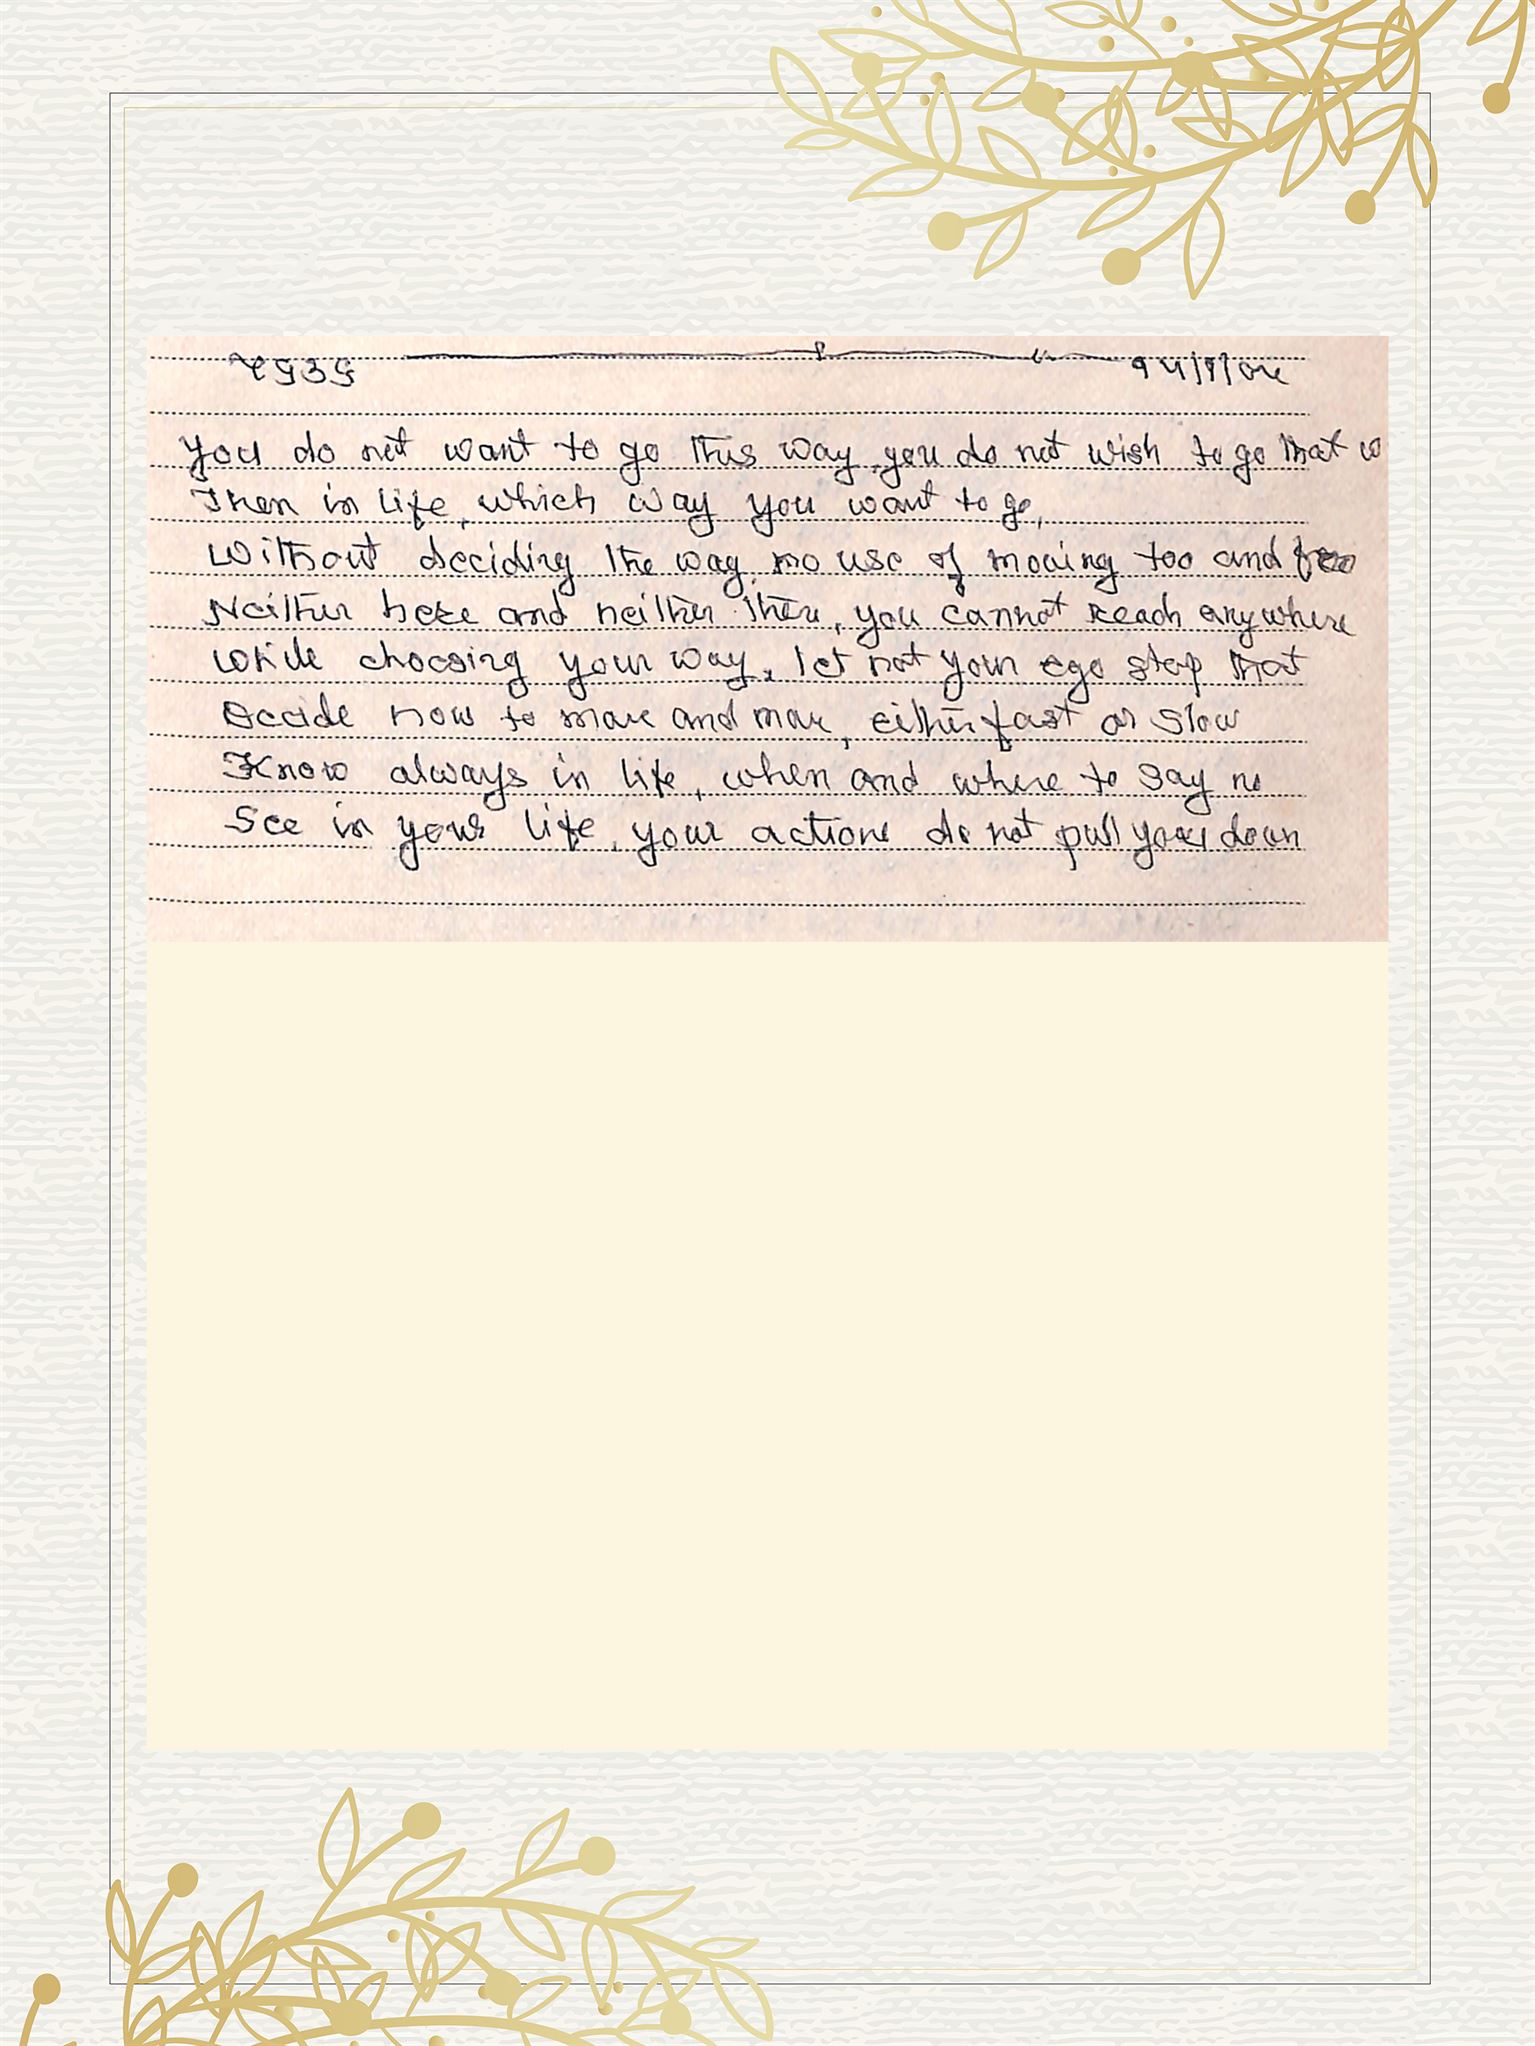 You do not want to go this way, you do not wish to go that
Then in life, which way you want to go,
Without deciding the way, no use of moving too and
Neither here and neither there, you cannot reach anywhere
While choosing your way, let not your ego stop that
Decide how to move and move, either fast or slow
Know always in life, when and where to say no
See in your life, your actions do not pull you down